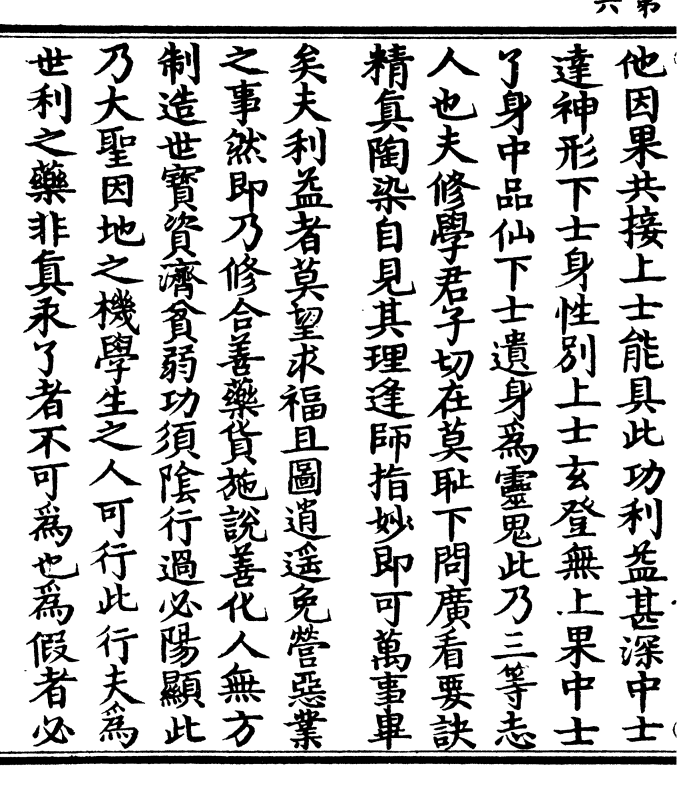 第六
他因果共接上士能具此功利益甚深中士
達神形下士身性別上士玄登無上果中士
了身中品仙下士遺身為靈鬼此乃三等志
人也夫修學君子切在莫恥下問廣看要訣
精真陶染自見其理逢師指妙即可萬事畢
矣夫利益者莫望求福且圖逍遥免營惡業
之事然即乃修合善藥貨施說善化人無方
制造世寶資濟貧弱功須陰行過必陽顯此
乃大聖因地之機學生之人可行此行夫為
世利之藥非真汞了者不可為也為假者必